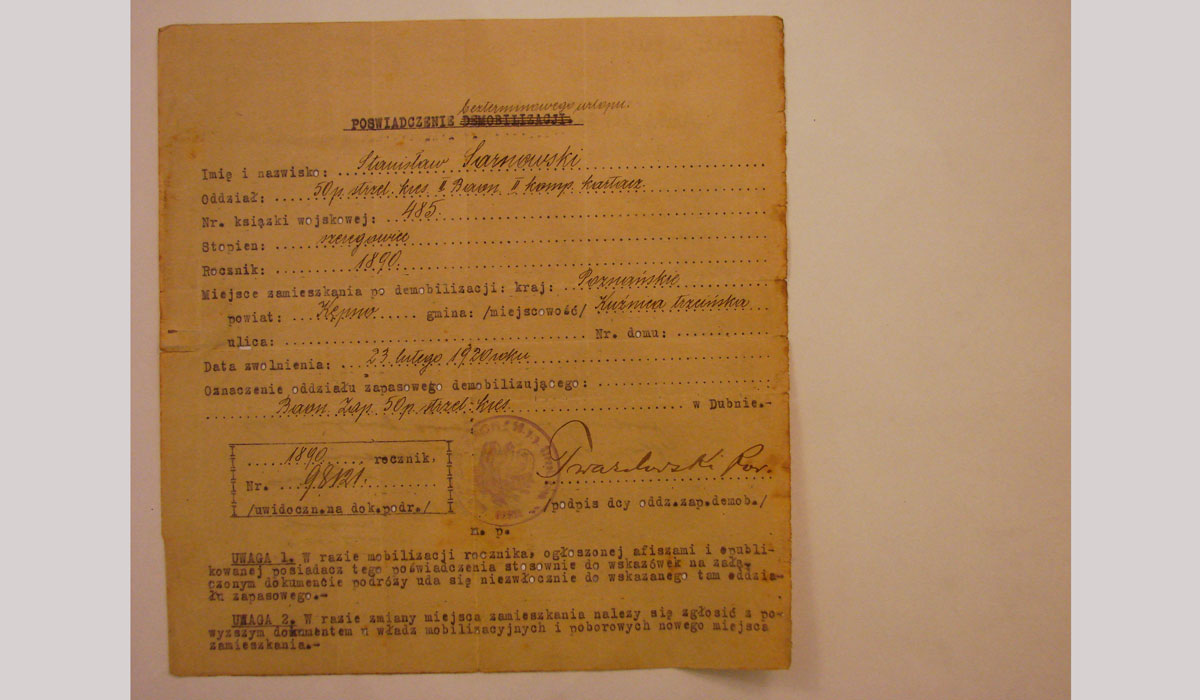 bezterminowego urlopu.
POSWIADCZENIE DEMOBILIZACJI.
Imię i nazwisko: Stanisław Sarnowski
Oddział: 50 p. strzel. kres. II Baon. II komp. kartacz.
Nr. książki wojskowej: 485.
Stopien: szeregowiec
Rocznik: 1890.
Miejsce zamieszkania po demobilizacji: kraj: Poznańskie
powiat: Kępno gmina: /miejscowość/ Kuźnica
ulica: Nr. domu:
Data zwolnienia: 23 lutego 1920 roku
Oznaczenie oddziału zapasowego demobilizującego:
Baon. Zap. 50 p. strzel. kres. w Dubnie.-
1890. rocznik.
Nr. 98121.
/uwidoczn.na dok.podr./
Twardowski Por.
/podpis dcy oddz.zap.demob./
n. p.
UWAGA 1. W razie mobilizacji rocznika, ogłoszonej afiszami i opubli-
kowanej posiadacz tego poświadczenia stosownie do wskazówek na załą-
czonym dokumencie podróży uda się niezwłocznie do wskazanego tam oddzia-
łu zapasowego.-
UWAGA 2. W razie zmiany miejsca zamieszkania nalezy się zgłosić z po-
wyzszym dokumentem u władz mobilizacyjnych i poborowych nowego miejsca
zamieszkania.-